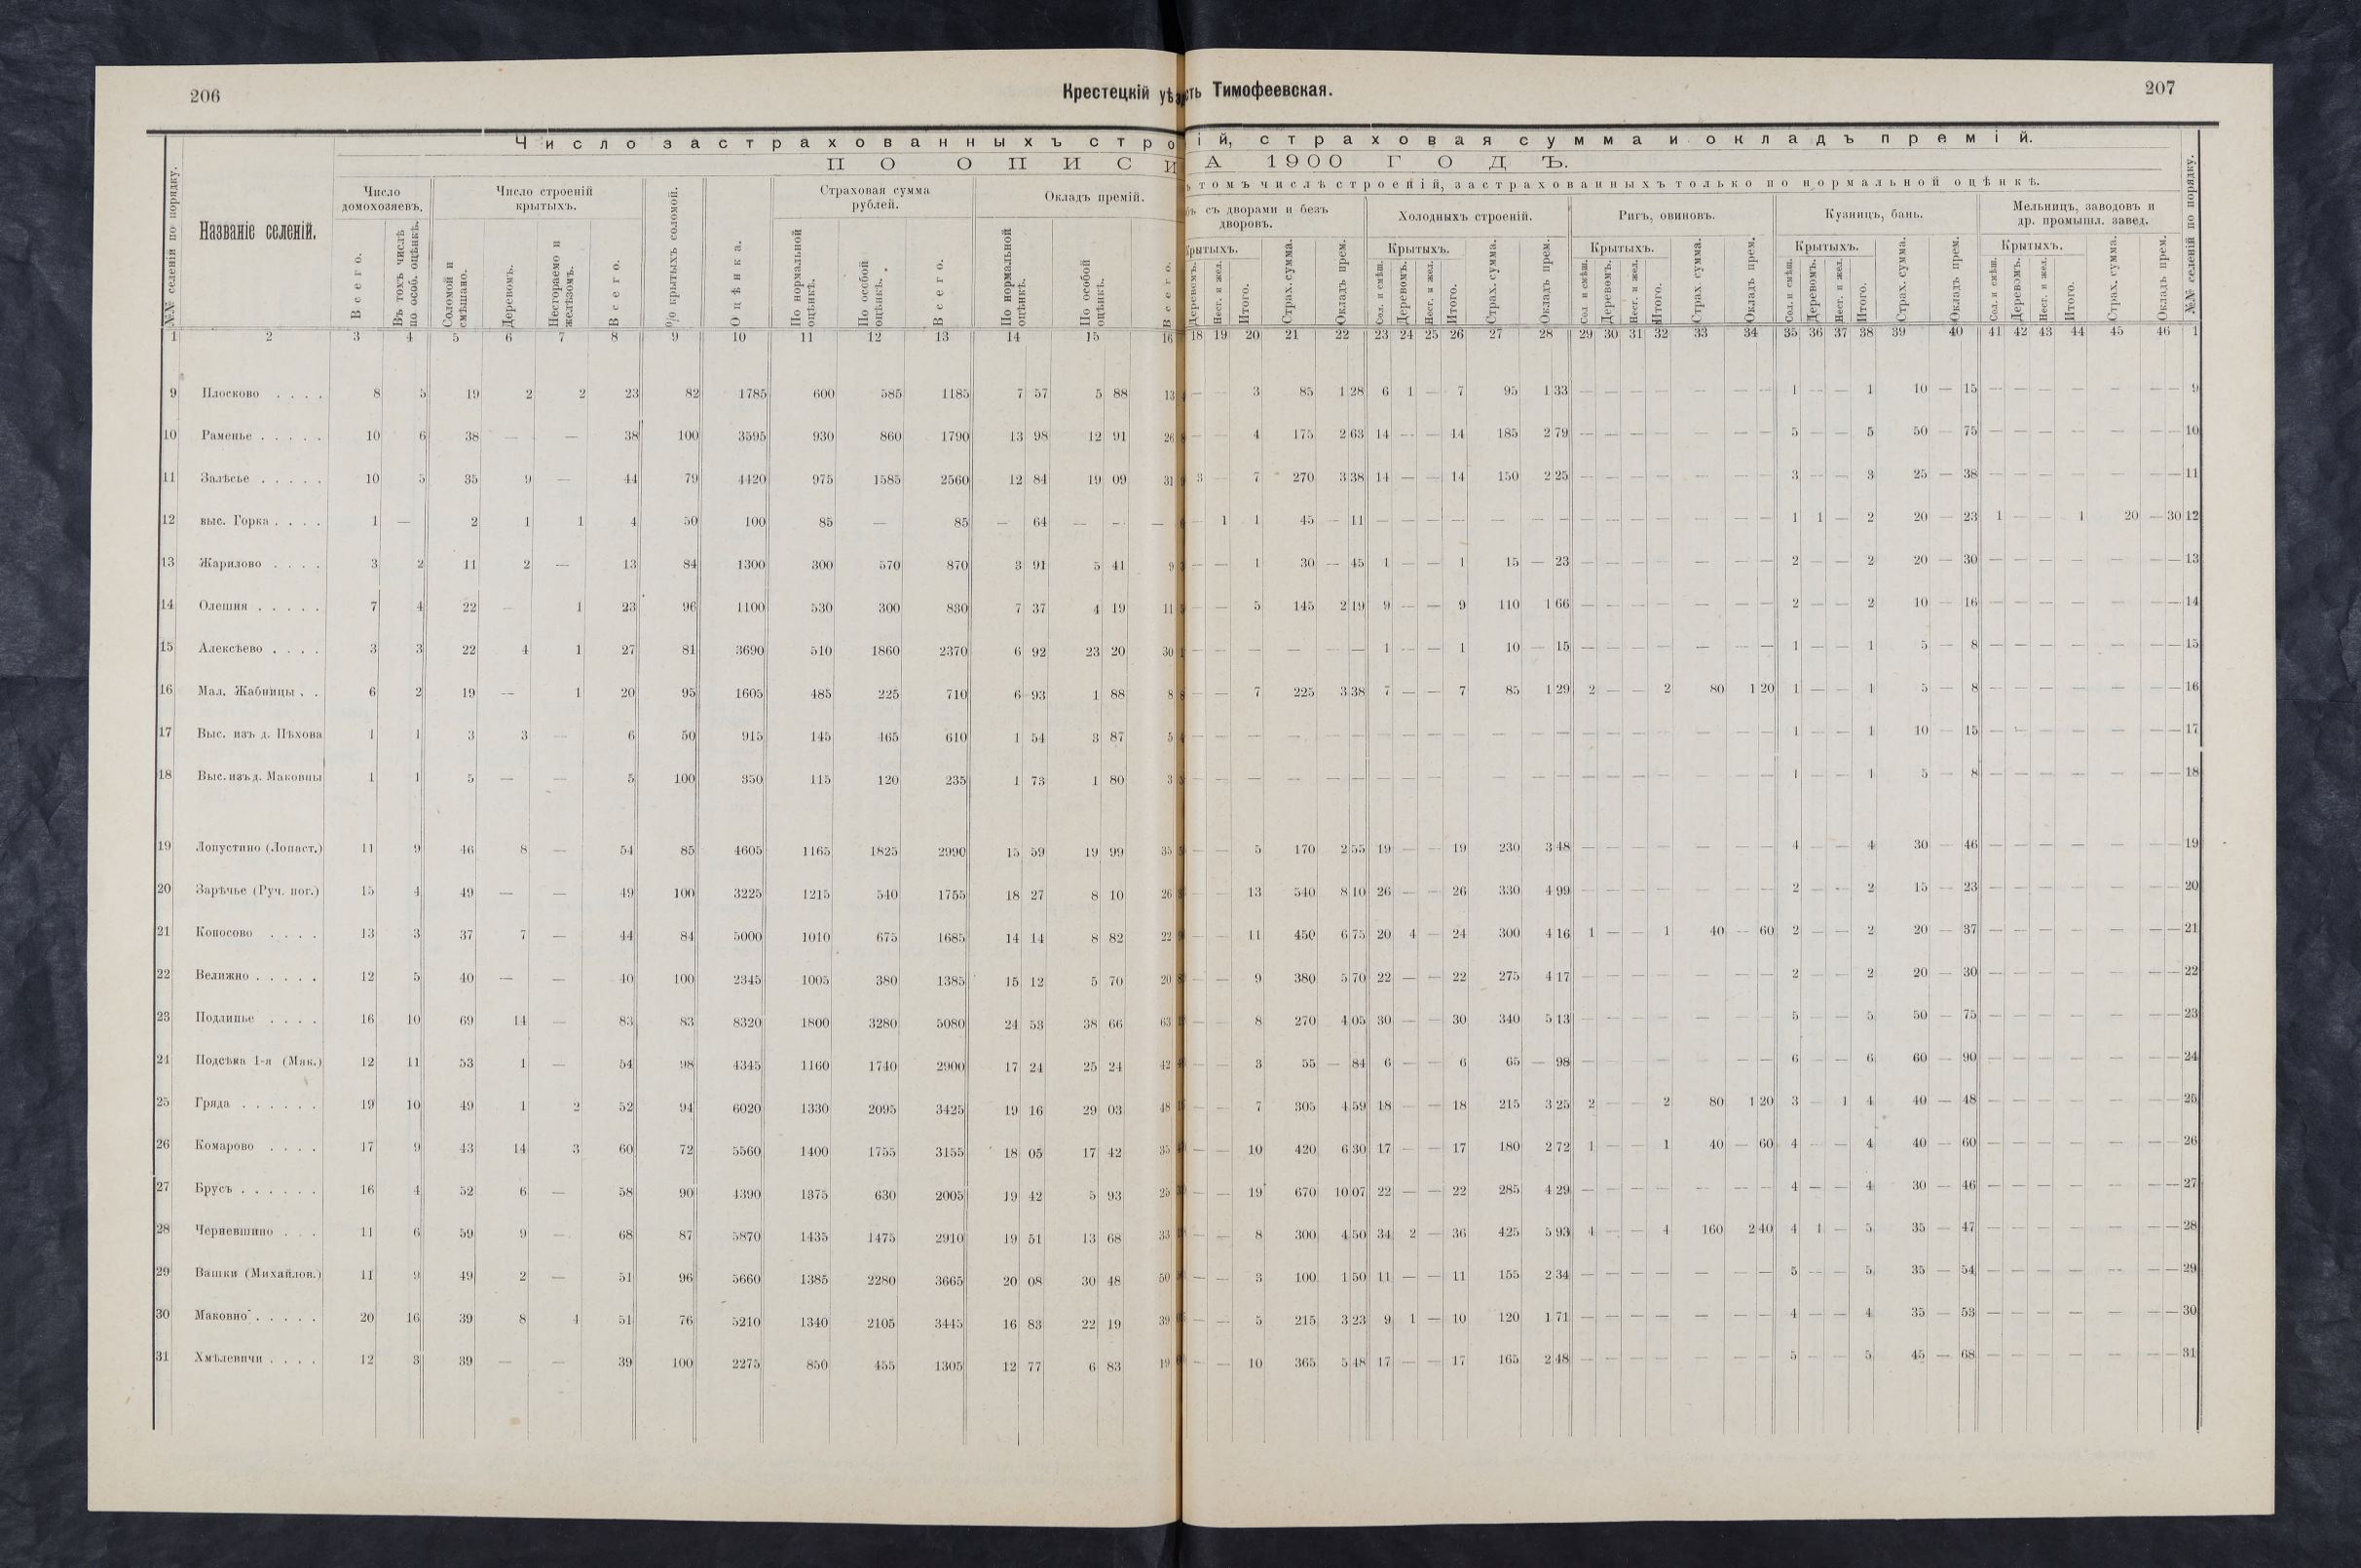 206
Крестецкій уѣ
Число застрахованныхъ стро
ПО ОПИСИ
№№ селеній по порядку.
Названіе селеній.
Число домохозяевъ.
Число строеній крытыхъ.
% крытыхъ соломой.
Оцѣнка.
Страховая сумма рублей.
Окладъ премій.
Всего.
Въ томъ числѣ по особ. оцѣнкѣ.
Соломой и смѣшано.
Деревомъ.
Несгораемо и желѣзомъ.
Всего.
По нормальной оцѣнкѣ.
По особой оцѣнкѣ.
Всего.
По нормальной оцѣнкѣ.
По особой оцѣнкѣ.
Всего.
1 2 3 4 5 6 7 8 9 10 11 12 13 14 15 16
9 Плосково . . . . 8 5 19 2 2 23 82 1785 600 585 1185 7 57 5 88 13
10 Раменье . . . . . 10 6 38 — — 38 100 3595 930 860 1790 13 98 12 91 26
11 Залѣсье . . . . . 10 5 35 9 — 44 79 4420 975 1585 2560 12 84 19 09 31
12 выс. Горка . . . . 1 — 2 1 1 4 50 100 85 — 85 — 64 — — —
13 Жарилово . . . . 3 2 11 2 — 13 84 1300 300 570 870 3 91 5 41 9
14 Олешня . . . . . 7 4 22 — 1 23 96 1100 530 300 830 7 37 4 19 11
15 Алексѣево . . . . 3 3 22 4 1 27 81 3690 510 1860 2370 6 92 23 20 30
16 Мал. Жабницы . . 6 2 19 — 1 20 95 1605 485 225 710 6 93 1 88 8
17 Выс. изъ д. Пѣхова 1 1 3 3 — 6 50 915 145 465 610 1 54 3 87 5
18 Выс. изъ д. Маковны 1 1 5 — — 5 100 350 115 120 235 1 73 1 80 3
19 Лопустино (Лопаст.) 11 9 46 8 — 54 85 4605 1165 1825 2990 15 59 19 99 35
20 Зарѣчье (Руч. пог.) 15 4 49 — — 49 100 3225 1215 540 1755 18 27 8 10 26
21 Коносово . . . . 13 3 37 7 — 44 84 5000 1010 675 1685 14 14 8 82 22
22 Велижно . . . . . 12 5 40 — — 40 100 2345 1005 380 1385 15 12 5 70 20
23 Подлипье . . . . 16 10 69 14 — 83 83 8320 1800 3280 5080 24 53 38 66 63
24 Подсѣка 1-я (Мяк.) 12 11 53 1 — 54 98 4345 1160 1740 2900 17 24 25 24 42
25 Гряда . . . . . . 19 10 49 1 2 52 94 6020 1330 2095 3425 19 16 29 03 48
26 Комарово . . . . 17 9 43 14 3 60 72 5560 1400 1755 3155 18 05 17 42 35
27 Брусъ . . . . . . 16 4 52 6 — 58 90 4390 1375 630 2005 19 42 5 93 25
28 Черневшино . . . 11 6 59 9 — 68 87 5870 1435 1475 2910 19 51 13 68 33
29 Вашки (Михайлов.) 11 9 49 2 — 51 96 5660 1385 2280 3665 20 08 30 48 50
30 Маковно . . . . . 20 16 39 8 4 51 76 5210 1340 2105 3445 16 83 22 19 39
31 Хмѣлевичи . . . . 12 3 39 — — 39 100 2275 850 455 1305 12 77 6 83 19
сть Тимофеевская.
207
ій, страховая сумма и окладъ премій.
А 1900 ГОДЪ.
томъ числѣ строеній, застрахованныхъ только по нормальной оцѣнкѣ.
съ дворами и безъ дворовъ.
Холодныхъ строеній.
Ригъ, овиновъ.
Кузницъ, бань.
Мельницъ, заводовъ и др. промышл. завед.
Крытыхъ.
Деревомъ.
Несг. и жел.
Итого.
Страх. сумма.
Окладъ прем.
Крытыхъ.
Сол. и смѣш.
Деревомъ.
Несг. и жел.
Итого.
Страх. сумма.
Окладъ прем.
Крытыхъ.
Сол. и смѣш.
Деревомъ.
Несг. и жел.
Итого.
Страх. сумма.
Окладъ прем.
Крытыхъ.
Сол. и смѣш.
Деревомъ.
Несг. и жел.
Итого.
Страх. сумма.
Окладъ прем.
Крытыхъ.
Сол. и смѣш.
Деревомъ.
Несг. и жел.
Итого.
Страх. сумма.
Окладъ прем.
№№ селеній по порядку.
18 19 20 21 22 23 24 25 26 27 28 29 30 31 32 33 34 35 36 37 38 39 40 41 42 43 44 45 46 1
— — 3 85 1 28 6 1 — 7 95 1 33 — — — — — — 1 — — 1 10 — 15 — — — — — — 9
— — 4 175 2 63 14 — — 14 185 2 79 — — — — — — 5 — — 5 50 — 75 — — — — — — 10
3 — 7 270 3 38 14 — — 14 150 2 25 — — — — — — 3 — — 3 25 — 38 — — — — — — 11
— 1 1 45 — 11 — — — — — — — — — — — — 1 1 — 2 20 — 23 1 — — 1 20 — 30 12
— — 1 30 — 45 1 — — 1 15 — 23 — — — — — — 2 — — 2 20 — 30 — — — — — — 13
— — 5 145 2 19 9 — — 9 110 1 66 — — — — — — 2 — — 2 10 — 16 — — — — — — 14
— — — — — 1 — — 1 10 — 15 — — — — — — 1 — — 1 5 — 8 — — — — — — 15
— — 7 225 3 38 7 — — 7 85 1 29 2 — — 2 80 1 20 1 — — 1 5 — 8 — — — — — — 16
— — — — — — — — — — — — — — — — — 1 — — 1 10 — 15 — — — — — — 17
— — — — — — — — — — — — — — — — — 1 — — 1 5 — 8 — — — — — — 18
— — 5 170 2 55 19 — — 19 230 3 48 — — — — — — 4 — — 4 30 — 46 — — — — — — 19
— — 13 540 8 10 26 — — 26 330 4 99 — — — — — — 2 — — 2 15 — 23 — — — — — — 20
— — 11 450 6 75 20 4 — 24 300 4 16 1 — — 1 40 — 60 2 — — 2 20 — 37 — — — — — — 21
— — 9 380 5 70 22 — — 22 275 4 17 — — — — — — 2 — — 2 20 — 30 — — — — — — 22
— — 8 270 4 05 30 — — 30 340 5 13 — — — — — — 5 — — 5 50 — 75 — — — — — — 23
— — 3 55 — 84 6 — — 6 65 — 98 — — — — — — 6 — — 6 60 — 90 — — — — — — 24
— — 7 305 4 59 18 — — 18 215 3 25 2 — — 2 80 1 20 3 — 1 4 40 — 48 — — — — — — 25
— — 10 420 6 30 17 — — 17 180 2 72 1 — — 1 40 — 60 4 — — 4 40 — 60 — — — — — — 26
— — 19 670 10 07 22 — — 22 285 4 29 — — — — — — 4 — — 4 30 — 46 — — — — — — 27
— — 8 300 4 50 34 2 — 36 425 5 93 4 — — 4 160 2 40 4 1 — 5 35 — 47 — — — — — — 28
— — 3 100 1 50 11 — — 11 155 2 34 — — — — — — 5 — — 5 35 — 54 — — — — — — 29
— — 5 215 3 23 9 1 — 10 120 1 71 — — — — — — 4 — — 4 35 — 53 — — — — — — 30
— — 10 365 5 48 17 — — 17 165 2 48 — — — — — — 5 — — 5 45 — 68 — — — — — — 31